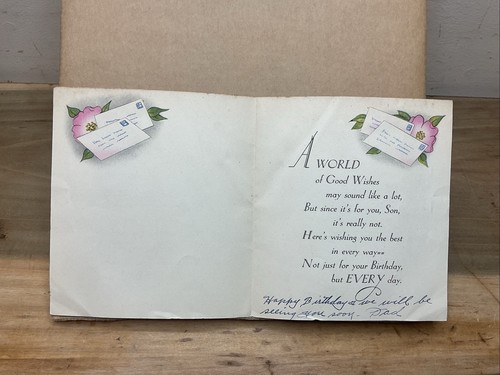 A WORLD
of Good Wishes
may sound like a lot,
But since it's for you, Son,
it's really not.
Here's wishing you the best
in every way--
Not just for your Birthday,
but EVERY day.
Happy Birthday & we will be
seeing you soon. Dad